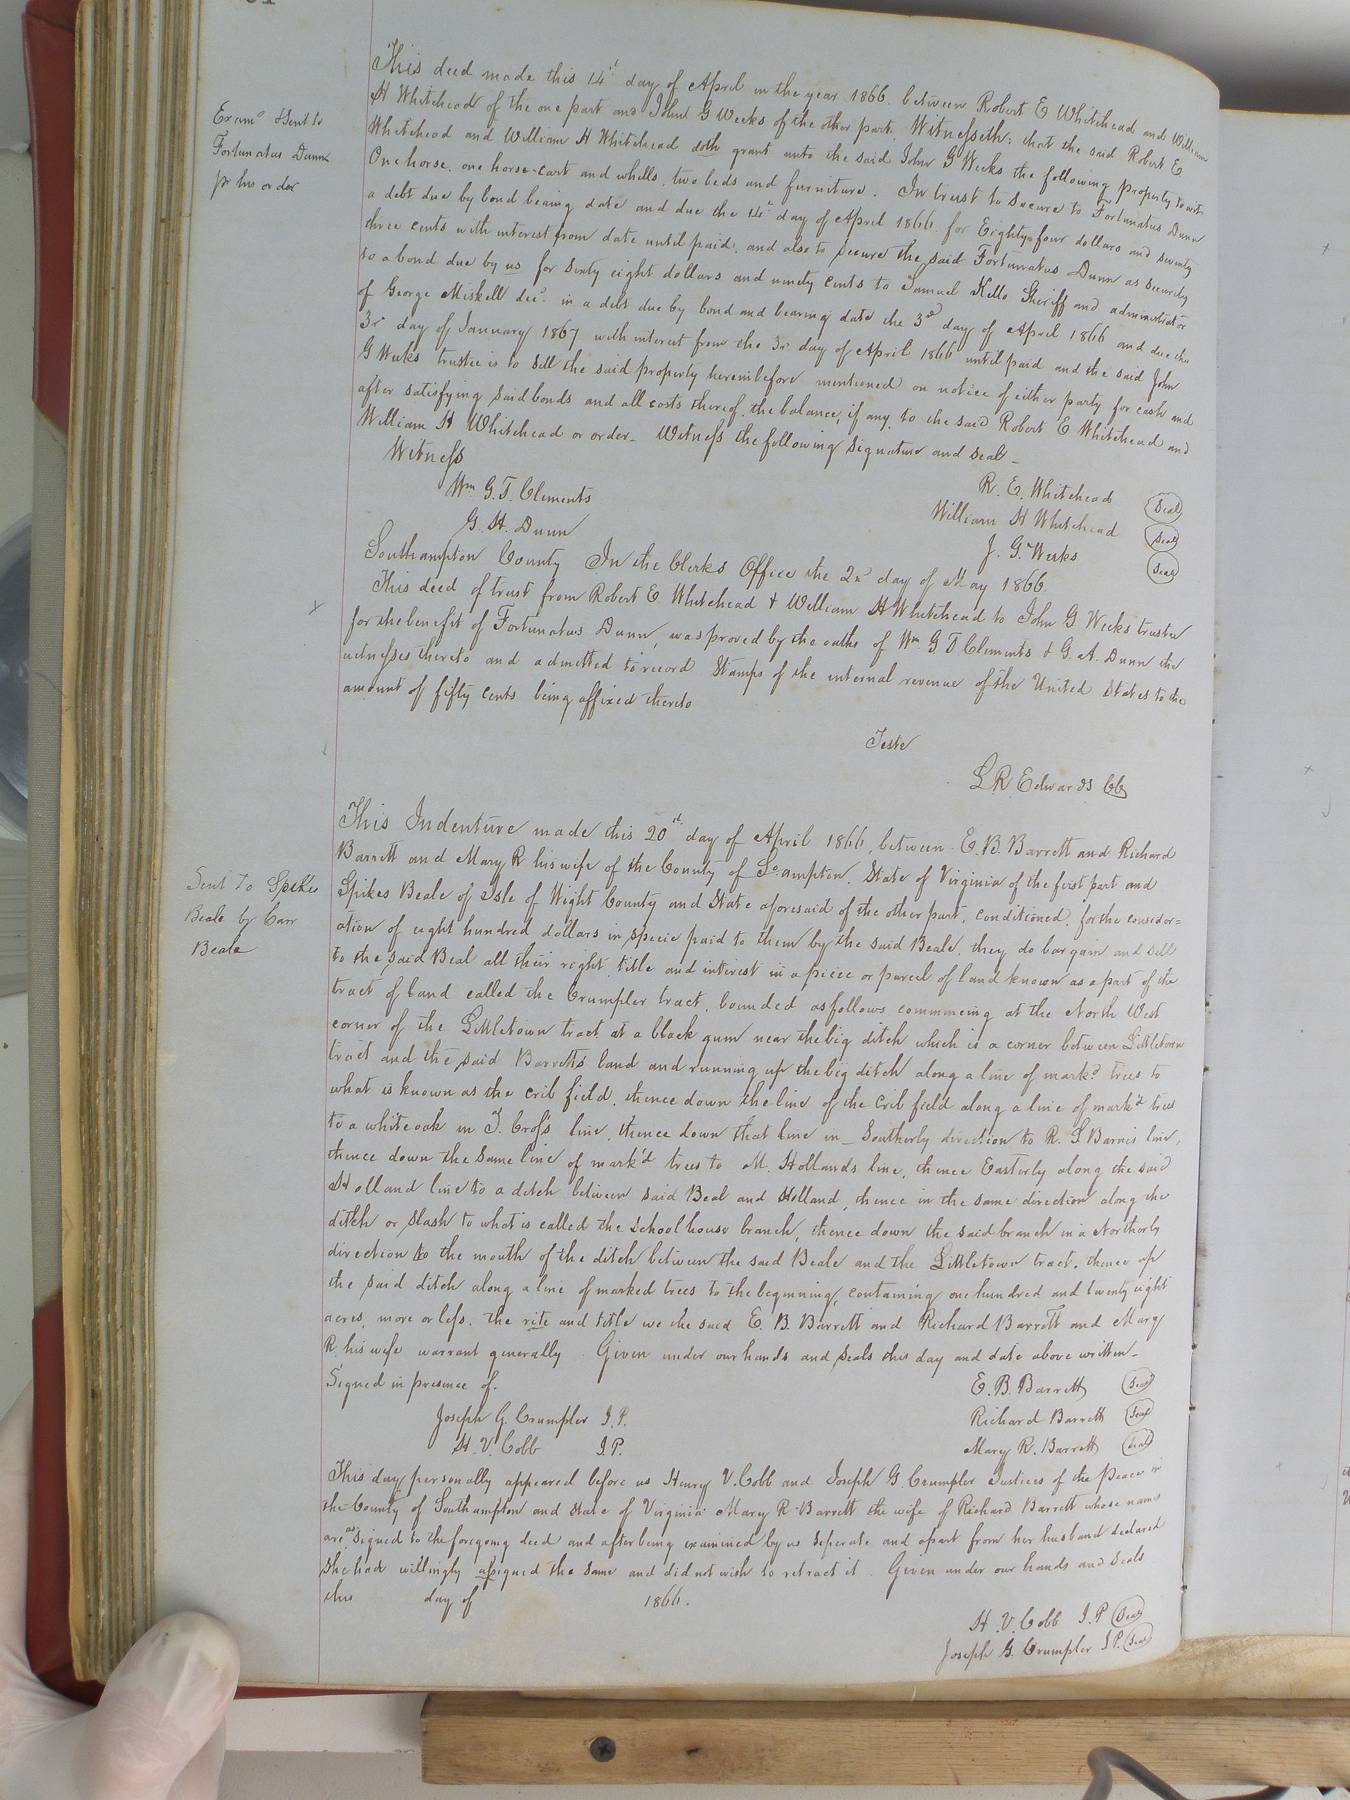 This deed made this 14' day of April in the year 1866. between Robert E Whitehead and William
H Whitehead of the one part and John G Weeks of the other part. Witnesseth: that the said Robert E
Whitehead and William H Whitehead doth grant unto the said John G Weeks the following property to wit
Exam'd & Sent to
Fortunatus Dunn
pr his order
One horse, one horse-cart and whells, two beds and furniture. In trust to secure to Fortunatus Dunn
a debt due by bond bearing date and due the 14' day of April 1866 for Eighty four dollars and seventy
three cents with interest from date until paid, and also to secure the said Fortunatus Dunn as security
to a bond due by us for sixty eight dollars and ninety cents to Samuel Kello Sheriff and administrator
of George Miskell dec'd. in a debt due by bond and bearing date the 3rd day of April 1866 and due the
3r day of January 1867 with interest from the 3r day of April 1866 until paid and the said John
G Weeks trustee is to sell the said property hereinbefore mentioned on notice of either party for cash and
after satisfying said bonds and all costs thereof, the balance, if any, to the said Robert E Whitehead and
William H Whitehead or order_ Witness the following signature and seal_
Witness
Wm G. T. Clements
G. H. Dunn
R. E. Whitehead Seal
William H Whitehead Seal
J. G. Weeks Seal
Southampton County In the Clerks Office the 2n day of May 1866.
This deed of trust from Robert E Whitehead & William H Whitehead to John G Weeks trustee
for the benefit of Fortunatus Dunn, was proved by the oaths of Wm G T. Clements & G. A. Dunn the
witnesses thereto and admitted to record Stamps of the internal revenue of the United States to the
amount of fifty cents being affixed thereto
Teste
L R Edwards CC
This Indenture made this 20th day of April 1866, between E. B. Barrett and Richard
Barrett and Mary R his wife of the County of So ampton, State of Virginia of the first part and
Sent To Spikes
Beale by Carr
Beale
Spikes Beale of Isle of Wight County and State aforesaid of the other part, conditioned, for the consider=
ation of eight hundred dollars in specie paid to them by the said Beale, they do bargain and sell
to the said Beal all their right, title and interest in a piece or parcel of land known as a part of the
tract of land called the Crumpler tract, bounded as follows commencing at the North West
corner of the Littletown tract at a black gum near the big ditch which is a corner between Littletown
tract and the said Barretts land and running up the big ditch along a line of mark'd trees to
what is known as the crib field, thence down the line of the crib field along a line of mark'd trees
to a white oak in J. Cross line, thence down that line in_ Southerly direction to R. S Barnes line,
thence down the same line of mark'd trees to M. Hollands line, thence Easterly along the said
Holland line to a ditch between said Beal and Holland, thence in the same direction along the
ditch or slash to what is called the schoolhouse branch, thence down the said branch in a Northerly
direction to the mouth of the ditch between the said Beale and the Littletown tract, thence up
the said ditch along a line of marked trees to the beginning, containing one hundred and twenty eight
acres, more or less. the rite and title we the said E. B. Barrett and Richard Barrett and Mary
R. his wife warrant generally. Given under our hands and seals this day and date above written_
Signed in presence of.
Joseph G. Crumpler J. P.
H. V. Cobb J. P.
E. B. Barrett Seal
Richard Barrett Seal
Mary R. Barrett Seal
This day personally appeared before us Henry V. Cobb and Joseph G. Crumpler Justices of the Peace in
the County of Southampton and State of Virginia Mary R. Barrett the wife of Richard Barrett whose name
are as signed to the foregoing deed and after being examined by us seperate and apart from her husband declared
she had willingly assigned the same and did not wish to retract it. Given under our hands and seals
this day of 1866.
H. V. Cobb J. P Seal
Joseph G. Crumpler J. P. Seal